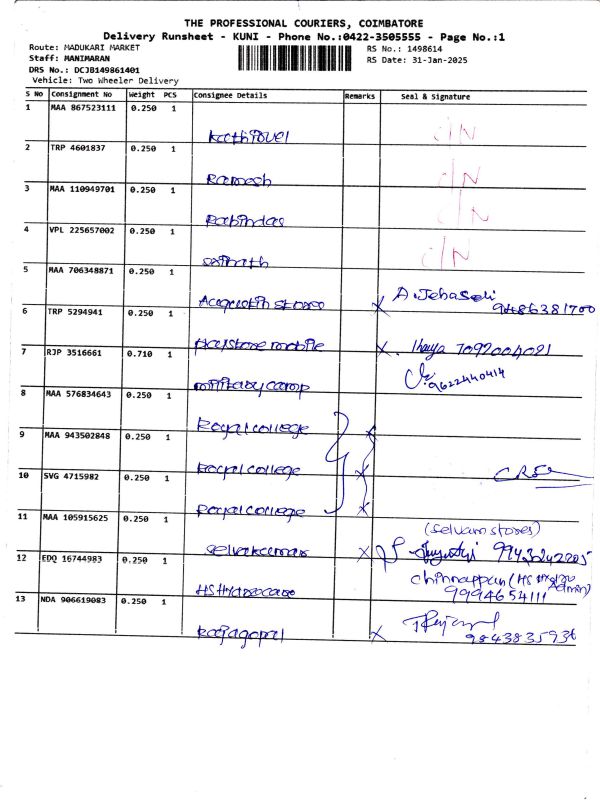 THE PROFESSIONAL COURIERS, COIMBATORE
Delivery Runsheet - KUNI - Phone No.:0422-3505555 - Page No.:1
Route: MADUKARI MARKET RS No.: 1498614
Staff: MANIMARAN RS Date: 31-Jan-2025
DRS No.: DCJB149861401
Vehicle: Two Wheeler Delivery
S No Consignment No Weight PCS Consignee Details Remarks Seal & Signature
1 MAA 867523111 0.250 1
Kathirvel D/N
2 TRP 4601837 0.250 1
Ramesh D/N
3 MAA 110949701 0.250 1
Rabindas D/N
4 VPL 225657002 0.250 1
D/N
5 MAA 706348871 0.250 1
stores x A. Jebaseli
9486381700
6 TRP 5294941 0.250 1
mobile x 7092004021
7 RJP 3516661 0.710 1
military camp 9622440414
8 MAA 576834643 0.250 1
Royal college
9 MAA 943502848 0.250 1 x
Royal college x
10 SVG 4715982 0.250 1
Royal college x
11 MAA 105915625 0.250 1 (Selvam stores)
Selvakumar x 9943242205
12 EDQ 16744983 0.250 1 Chinnappan (HS Admin)
HS Hydrocare 9994654111
13 NDA 906619083 0.250 1
Rajagopal x 9843835936